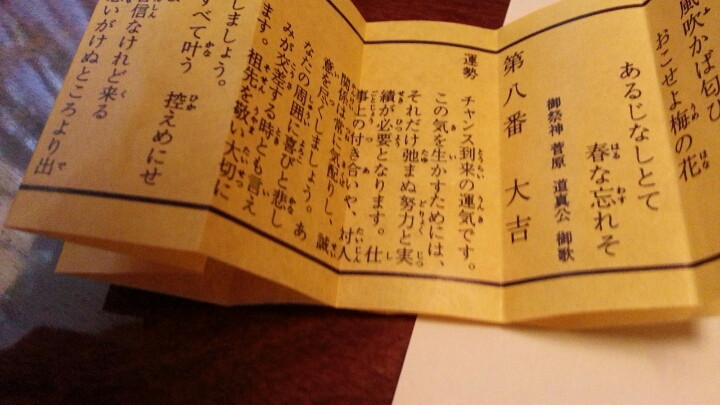 風吹かば匂ひ
おこせよ梅の花
あるじなしとて
春な忘れそ
御祭神 菅原 道真公 御歌
第八番 大吉
運勢 チャンス到来の運気です。
この気を生かすためには、
それだけ弛まぬ努力と実
績が必要となります。仕
事上の付き合いや、対人
関係は常に気配りし、誠
意を尽くしましょう。あ
なたの周囲に喜びと悲し
みが交差する時とも言え
ます。祖先を敬い大切に
しましょう。
すべて叶う 控えめにせ
信なけれど来る
いがけぬところより出